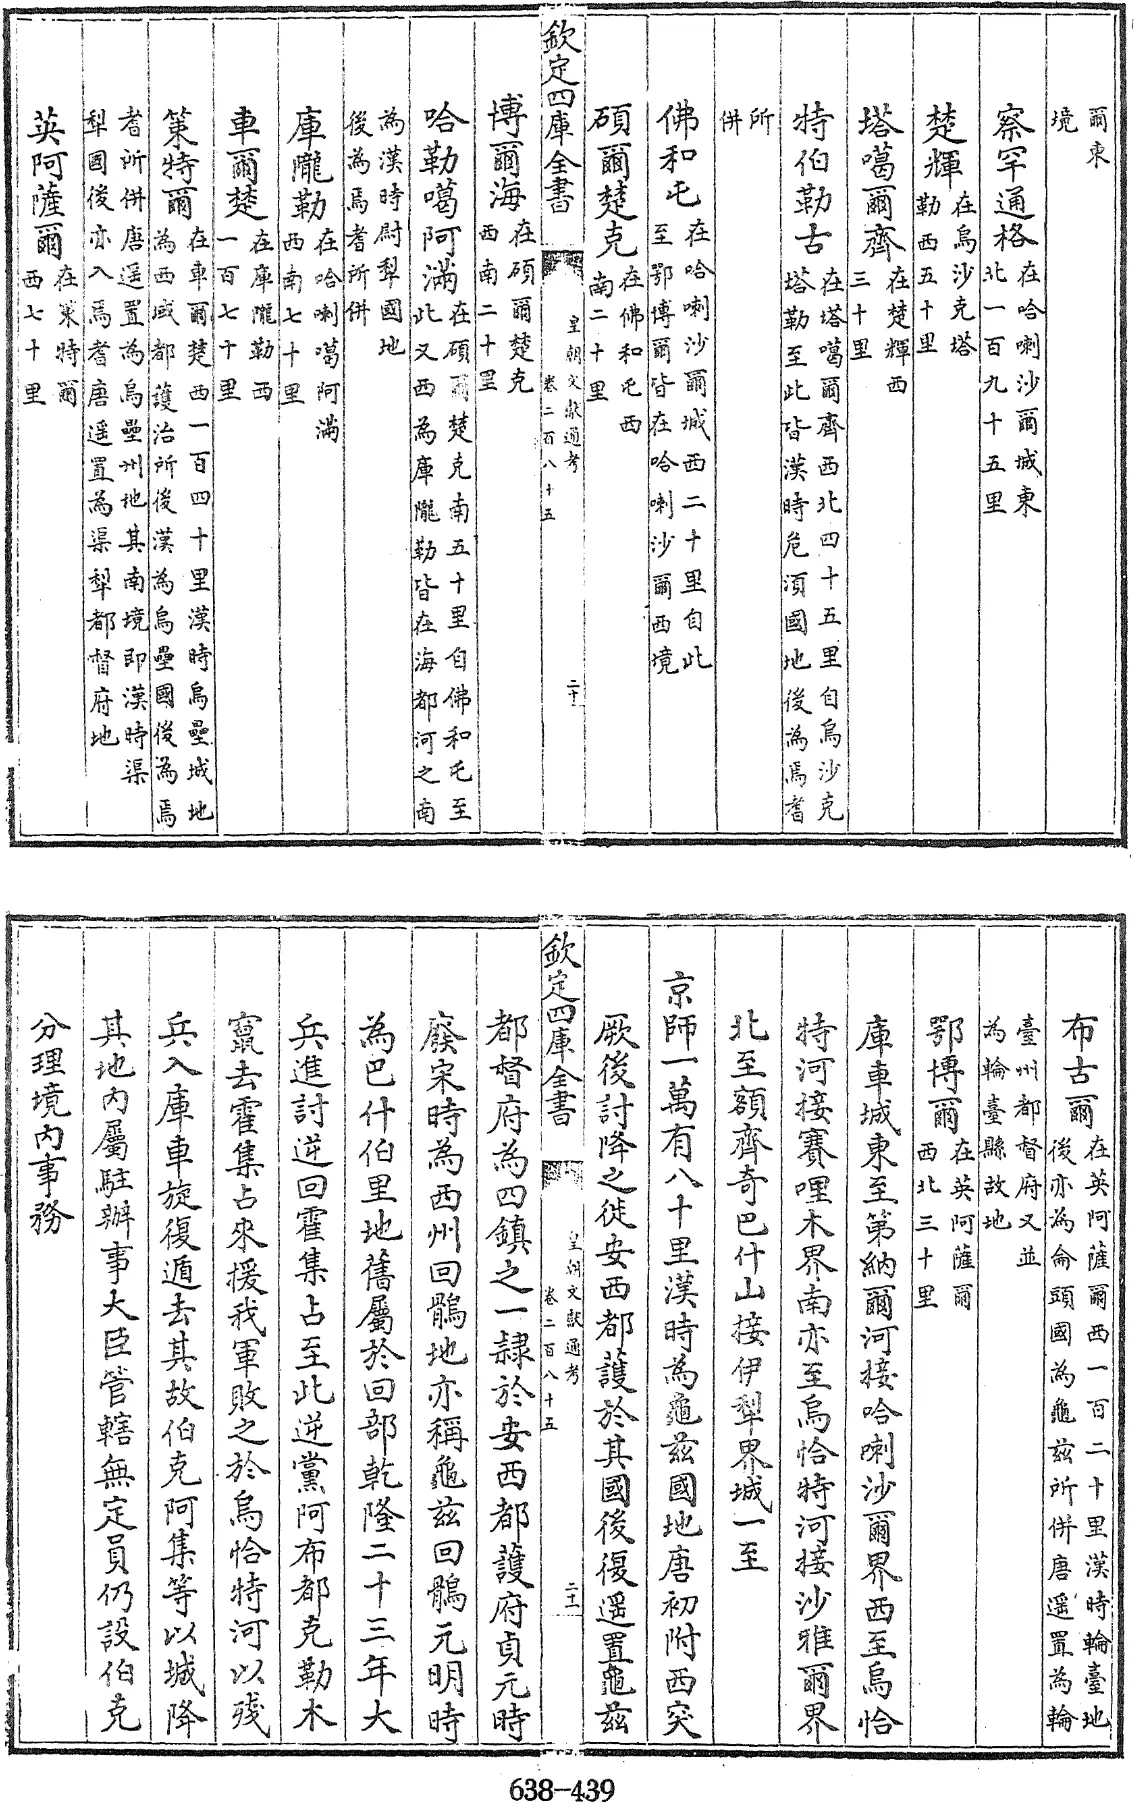 爾東
境
察罕通格在哈喇沙爾城東
北一百九十五里
楚輝在烏沙克塔
勒西五十里
塔噶爾齊在楚輝西
三十里
特伯勒古在塔噶爾齊西北四十五里自烏沙克
塔勒至此皆漢時危須國地後為焉耆
所
併
佛和屯在哈喇沙爾城西二十里自此
至鄂博爾皆在哈喇沙爾西境
碩爾楚克在佛和屯西
南二十里
欽定四庫全書
皇朝文獻通考
卷二百八十五
二十
博爾海在碩爾楚克
西南二十里
哈勒噶阿滿在碩爾楚克南五十里自佛和屯至
此又西為庫隴勒皆在海都河之南
為漢時尉犁國地
後為焉耆所併
庫隴勒在哈喇噶阿滿
西南七十里
車爾楚在庫隴勒西
一百七十里
策特爾在車爾楚西一百四十里漢時烏壘城地
為西域都護治所後漢為烏壘國後為焉
耆所併唐遥置為烏壘州地其南境即漢時渠
犁國後亦入焉耆唐遥置為渠犁都督府地
英阿薩爾在策特爾
西七十里
布古爾在英阿薩爾西一百二十里漢時輪臺地
後亦為侖頭國為龜兹所併唐遥置為輪
臺州都督府又並
為輪臺縣故地
鄂博爾在英阿薩爾
西北三十里
庫車城東至第納爾河接哈喇沙爾界西至烏恰
特河接賽哩木界南亦至烏恰特河接沙雅爾界
北至額齊奇巴什山接伊犂界城一至
京師一萬有八十里漢時為龜兹國地唐初附西突
厥後討降之徙安西都護於其國後復遥置龜兹
欽定四庫全書
皇朝文獻通考
卷二百八十五
二十一
都督府為四鎮之一隷於安西都護府貞元時
廢宋時為西州回鶻地亦稱龜兹回鶻元明時
為巴什伯里地舊屬於回部乾隆二十三年大
兵進討逆回霍集占至此逆黨阿布都克勒木
竄去霍集占來援我軍敗之於烏恰特河以殘
兵入庫車旋復遁去其故伯克阿集等以城降
其地内屬駐辦事大臣管轄無定員仍設伯克
分理境内事務
638-439